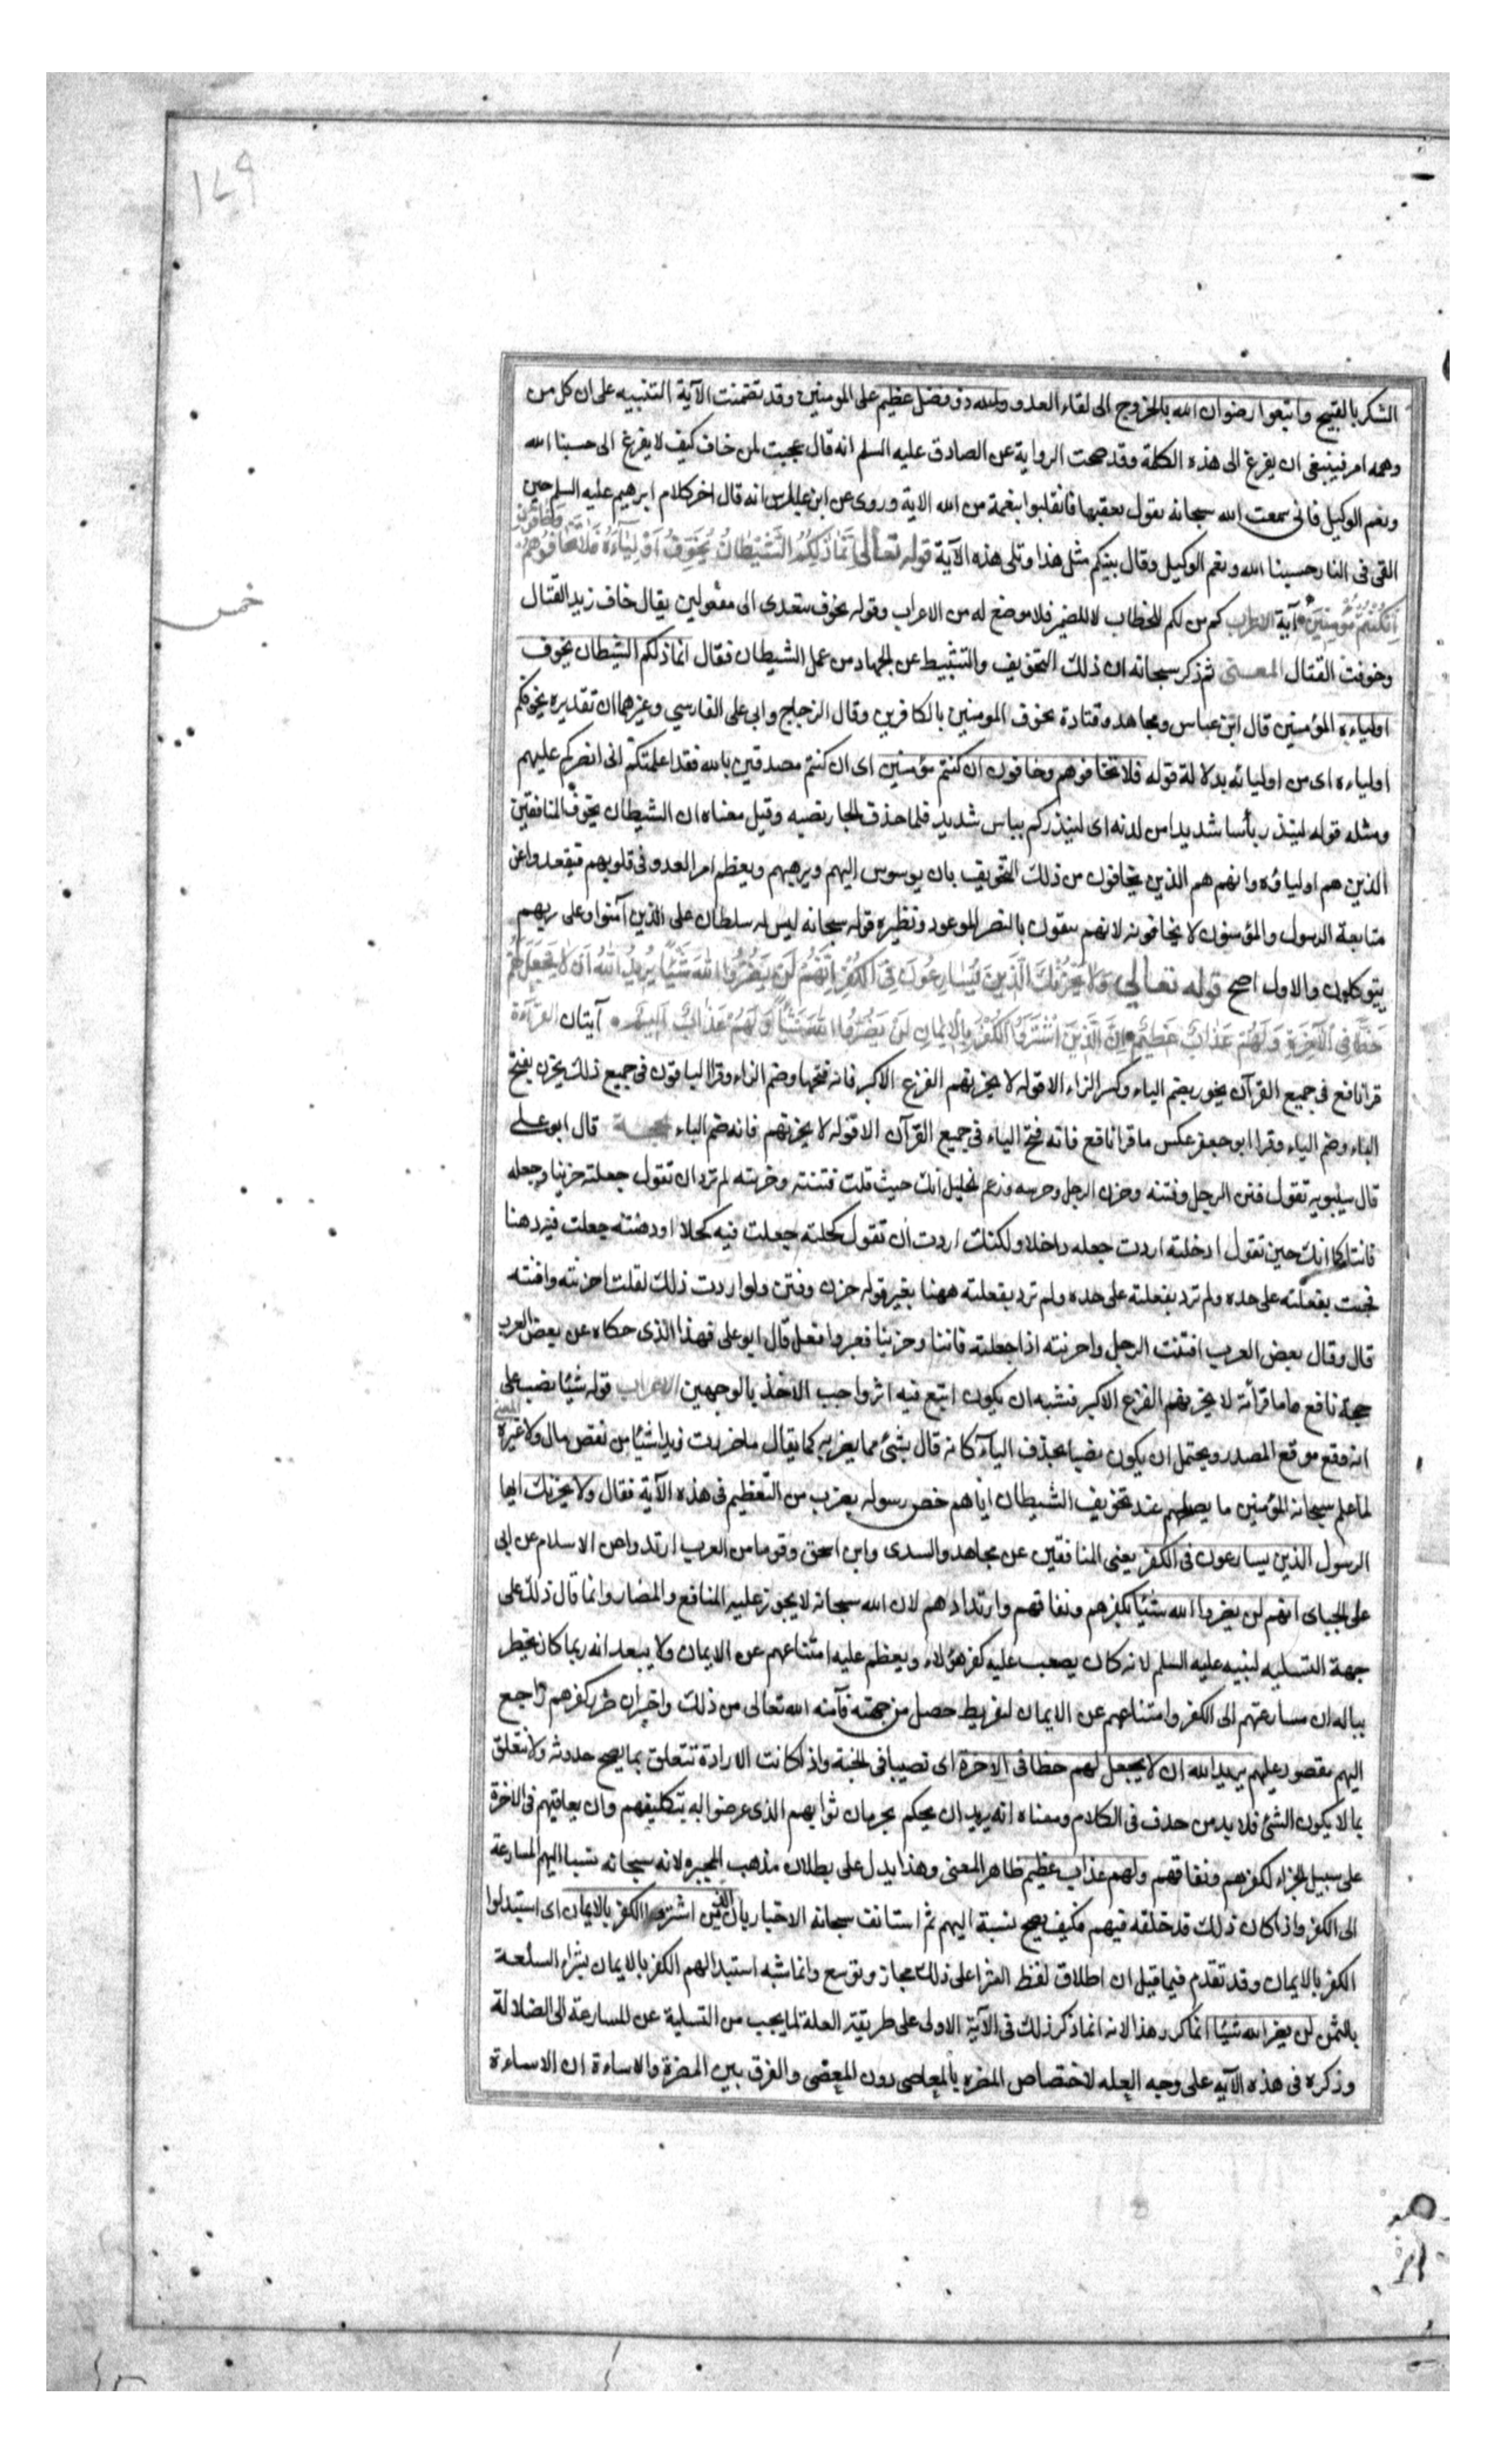 ١٤٩
الشكر بالقبيح واتبعوا رضوان الله بالخروج الى لقاء العدو والله ذو فضل عظيم على المومنين وقد تضمنت الآية التنبيه على ان كل من
وهمه امر فينبغى ان يفزع الى هذه الكلمة وقد صحت الرواية عن الصادق عليه السلم انه قال عجبت لمن خاف كيف لا يفزع الى حسبنا الله
ونعم الوكيل فانى سمعت الله سبحانه يقول بعقبها فانقلبوا بنعمة من الله الاية وروى عن ابن عباس انه قال اخر كلام ابرهيم عليه السلم حين
القى فى النار حسبنا الله ونعم الوكيل وقال نبيكم مثل هذا وتلى هذه الآية قوله تعالى اِنَّمَا ذَلِكُمُ الشَّيْطَانُ يُخَوِّفُ اَوْلِيَآءَهُ فَلَا تَخَافُوهُمْ وخافون
اِنْ كُنْتُمْ مُؤْمِنِينَ آية الاعراب كم من لكم للخطاب لا للضمير فلا موضع له من الاعراب وقوله يخوف يتعدى الى مفعولين يقال خاف زيد القتال
وخوفت القتال المعنى ثم ذكر سبحانه ان ذلك التخويف والتثبيط عن الجهاد من عمل الشيطان فقال انما ذلكم الشيطان يخوف
اولياءه المؤمنين قال ابن عباس ومجاهد وقتادة يخوف المومنين بالكافرين وقال الزجاج وابى على الفارسي وغيرهما ان تقديره يخوفكم
اولياءه اى من اوليائه بدلالة قوله فلا تخافوهم وخافون ان كنتم مؤمنين اى ان كنتم مصدقين بالله فقد اعلمتكم انى انصركم عليهم
ومثله قوله لينذر بأسا شديدا من لدنه اى لينذركم بباس شديد فلما حذف الجار نصبه وقيل معناه ان الشيطان يخوف المنافقين
الذين هم اولياؤه وانهم هم الذين يخافون من ذلك التخويف بان يوسوس اليهم ويرهبهم ويعظم امر العدو فى قلوبهم فيقعدوا عن
متابعة الرسول والمؤمنون لا يخافونه لانهم يثقون بالنصر الموعود ونظيره قوله سبحانه ليس له سلطان على الذين آمنوا وعلى ربهم
يتوكلون والاول اصح قوله تعالى وَلَا يَحْزُنْكَ الَّذِينَ يُسَارِعُونَ فِى الْكُفْرِ اِنَّهُمْ لَنْ يَضُرُّوا اللهَ شَيْئًا يُرِيدُ اللهُ اَنْ لَا يَجْعَلَ لَهُمْ
حَظًّا فِى الْآخِرَةِ وَلَهُمْ عَذَابٌ عَظِيمٌ اِنَّ الَّذِينَ اشْتَرَوُا الْكُفْرَ بِالْاِيمَانِ لَنْ يَضُرُّوا اللهَ شَيْئًا وَلَهُمْ عَذَابٌ اَلِيمٌ آيتان القرآءة
قرا نافع فى جميع القرآن يحزن بضم الياء وكسر الزاء الا قوله لا يحزنهم الفزع الاكبر فانه فتحها وضم الزاء وقرا الباقون فى جميع ذلك يحزن بفتح
الياء وضم الياء وقرا ابو جعفر عكس ما قرا نافع فانه فتح الياء فى جميع القرآن الا قوله لا يحزنهم فانه ضم الياء الحجة قال ابو على
قال سيبويه تقول فتن الرجل وفتنته وحزن الرجل وحزنته وزعم الخليل انك حيث قلت فتنته وحزنته لم ترد ان تقول جعلته حزينا وجعلته
فاتنا كما انك حين تقول ادخلته اردت جعله داخلا ولكنك اردت ان تقول كحلته جعلت فيه كحلا او دهنته جعلت فيه دهنا
فجئت بفعلته على حده ولم ترد بفعلته على حده ولم ترد بفعلته ههنا بغير قوله حزن وفتن ولو اردت ذلك لقلت احزنته وافتنته
قال وقال بعض العرب افتنت الرجل واحزنته اذا جعلته فاتنا وحزينا فغيروا فعل قال ابو على فهذا الذى حكاه عن بعض العرب
حجة نافع فاما قرأته لا يحزنهم الفزع الاكبر فيشبه ان يكون اتبع فيه اثرا واحب الاخذ بالوجهين الاعراب قوله شيئا نصب على
انه وقع موقع المصدر ويحتمل ان يكون نصبا بحذف البآء كانه قال بشئ مما يضر به كما يقال ما ضررت زيدا شيئا من نقص مال ولا غيره المعنى
لما علم سبحانه المؤمنين ما يصلحهم عند تخويف الشيطان اياهم خص رسوله بضرب من التعظيم فى هذه الآية فقال ولا يحزنك ايها
الرسول الذين يسارعون فى الكفر يعنى المنافقين عن مجاهد والسدى وابن اسحق وقوما من العرب ارتدوا عن الاسلام عن ابى
على الجبائى انهم لن يضروا الله شيئا بكفرهم ونفاقهم وارتدادهم لان الله سبحانه لا يجوز عليه المنافع والمضار وانما قال ذلك على
جهة التسليه لنبيه عليه السلم لانه كان يصعب عليه كفر هؤلاء ويعظم عليه امتناعهم عن الايمان ولا يبعد انه ربما كان يخطر
بباله ان مسارعتهم الى الكفر وامتناعهم عن الايمان لتفريط حصل من جهته فآمنه الله تعالى من ذلك واخبر ان ضرر كفرهم راجع
اليهم مقصور عليهم يريد الله ان لا يجعل لهم حظا فى الاخرة اى نصيبا فى الجنة واذا كانت الارادة تتعلق بما يصح حدوثه ولا تتعلق
بما لا يكون الشئ فلا بد من حذف فى الكلام ومعناه انه يريد ان يحكم بحرمان ثوابهم الذى عرضوا له بتكليفهم وان يعاقبهم فى الاخرة
على سبيل الجزاء لكفرهم ونفاقهم ولهم عذاب عظيم ظاهر المعنى وهذا يدل على بطلان مذهب المجبره لانه سبحانه نسبا اليهم المسارعة
الى الكفر واذا كان ذلك قد خلقه فيهم فكيف يصح نسبة اليهم ثم استانف سبحانه الاخبار بان الذين اشتروا الكفر بالايمان اى استبدلوا
الكفر بالايمان وقد تقدم فيما قيل ان اطلاق لفظ الشرا على ذلك مجاز وتوسع وانما شبه استبدالهم الكفر بالايمان بشراء السلعة
بالثمن لن يضروا الله شيئا انما كرر هذا لانه انما ذكر ذلك فى الآية الاولى على طريقة العلة لما يجب من التسلية عن المسارعة الى الضلالة
وذكره فى هذه الآيه على وجه العله لاختصاص المضره بالعاصى دون المعصى والفرق بين المضرة والاساءة ان الاساءة
خمس